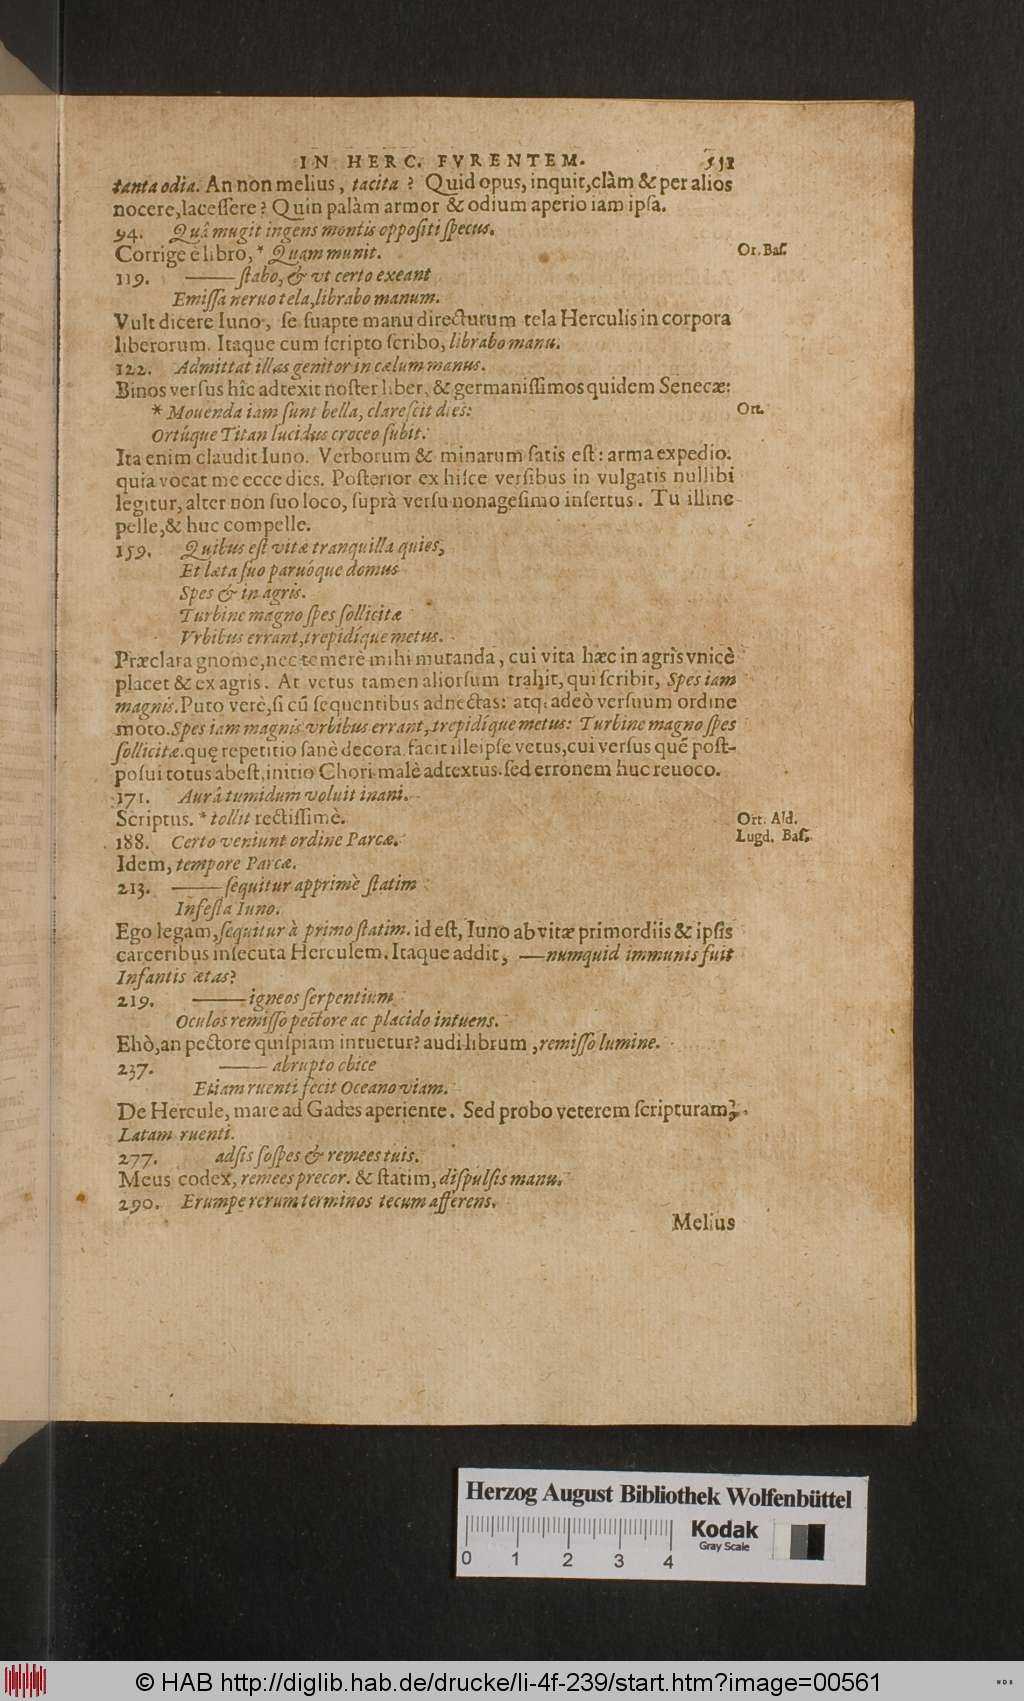 IN HERC. FVRENTEM. 531
tanta odia. An non melius, tacita? Quid opus, inquit, clàm & per alios
nocere, lacessere? Quin palàm armor & odium aperio iam ipsa.
94. Quâ mugit ingens montis oppositi specus.
Corrige è libro, * Quam munit. Or. Bas.
119. —— stabo, & vt certo exeant
Emissa neruo tela, librabo manum.
Vult dicere Iuno, se suapte manu directurum tela Herculis in corpora
liberorum. Itaque cum scripto scribo, librabo manu.
122. Admittat illas genitor in cælum manus.
Binos versus hîc adtexit noster liber, & germanissimos quidem Senecæ:
* Mouenda iam sunt bella, clarescit dies: Ort.
Ortúque Titan lucidus croceo subit.
Ita enim claudit Iuno. Verborum & minarum satis est: arma expedio.
quia vocat me ecce dies. Posterior ex hisce versibus in vulgatis nullibi
legitur, alter non suo loco, suprà versu nonagesimo insertus. Tu illinc
pelle, & huc compelle.
159. Quibus est vitæ tranquilla quies,
Et læta suo paruóque domus
Spes & in agris.
Turbine magno spes sollicitæ
Vrbibus errant, trepidíque metus.
Præclara gnome, nec temerè mihi mutanda, cui vita hæc in agris vnicè
placet & ex agris. At vetus tamen aliorsum trahit, qui scribit, Spes iam
magnis. Puto verè, si cū sequentibus adnectas: atq; adeò versuum ordine
moto. Spes iam magnis vrbibus errant, trepidíque metus: Turbine magno spes
sollicitæ. quę repetitio sanè decora. facit ille ipse vetus, cui versus quē post-
posui totus abest, initio Chori malè adtextus. sed erronem huc reuoco.
171. Aurâ tumidum voluit inani.
Scriptus. * tollit rectissimè. Ort. Ald.
188. Certo veniunt ordine Parcæ. Lugd. Bas.
Idem, tempore Parcæ.
213. —— sequitur apprimè statim
Infesta Iuno.
Ego legam, sequitur à primo statim. id est, Iuno ab vitæ primordiis & ipsis
carceribus insecuta Herculem. Itaque addit, —— numquid immunis fuit
Infantis ætas?
219. —— igneos serpentium
Oculos remisso pectore ac placido intuens.
Ehò, an pectore quispiam intuetur? audi librum, remisso lumine.
237. —— abrupto obice
Etiam ruenti fecit Oceano viam.
De Hercule, mare ad Gades aperiente. Sed probo veterem scripturam,
Latam ruenti.
277. adsis sospes & remees tuis.
Meus codex, remees precor. & statim, dispulsis manu.
290. Erumpe rerum terminos tecum afferens.
Melius
Herzog August Bibliothek Wolfenbüttel
0 1 2 3 4
Kodak
Gray Scale
© HAB http://diglib.hab.de/drucke/li-4f-239/start.htm?image=00561